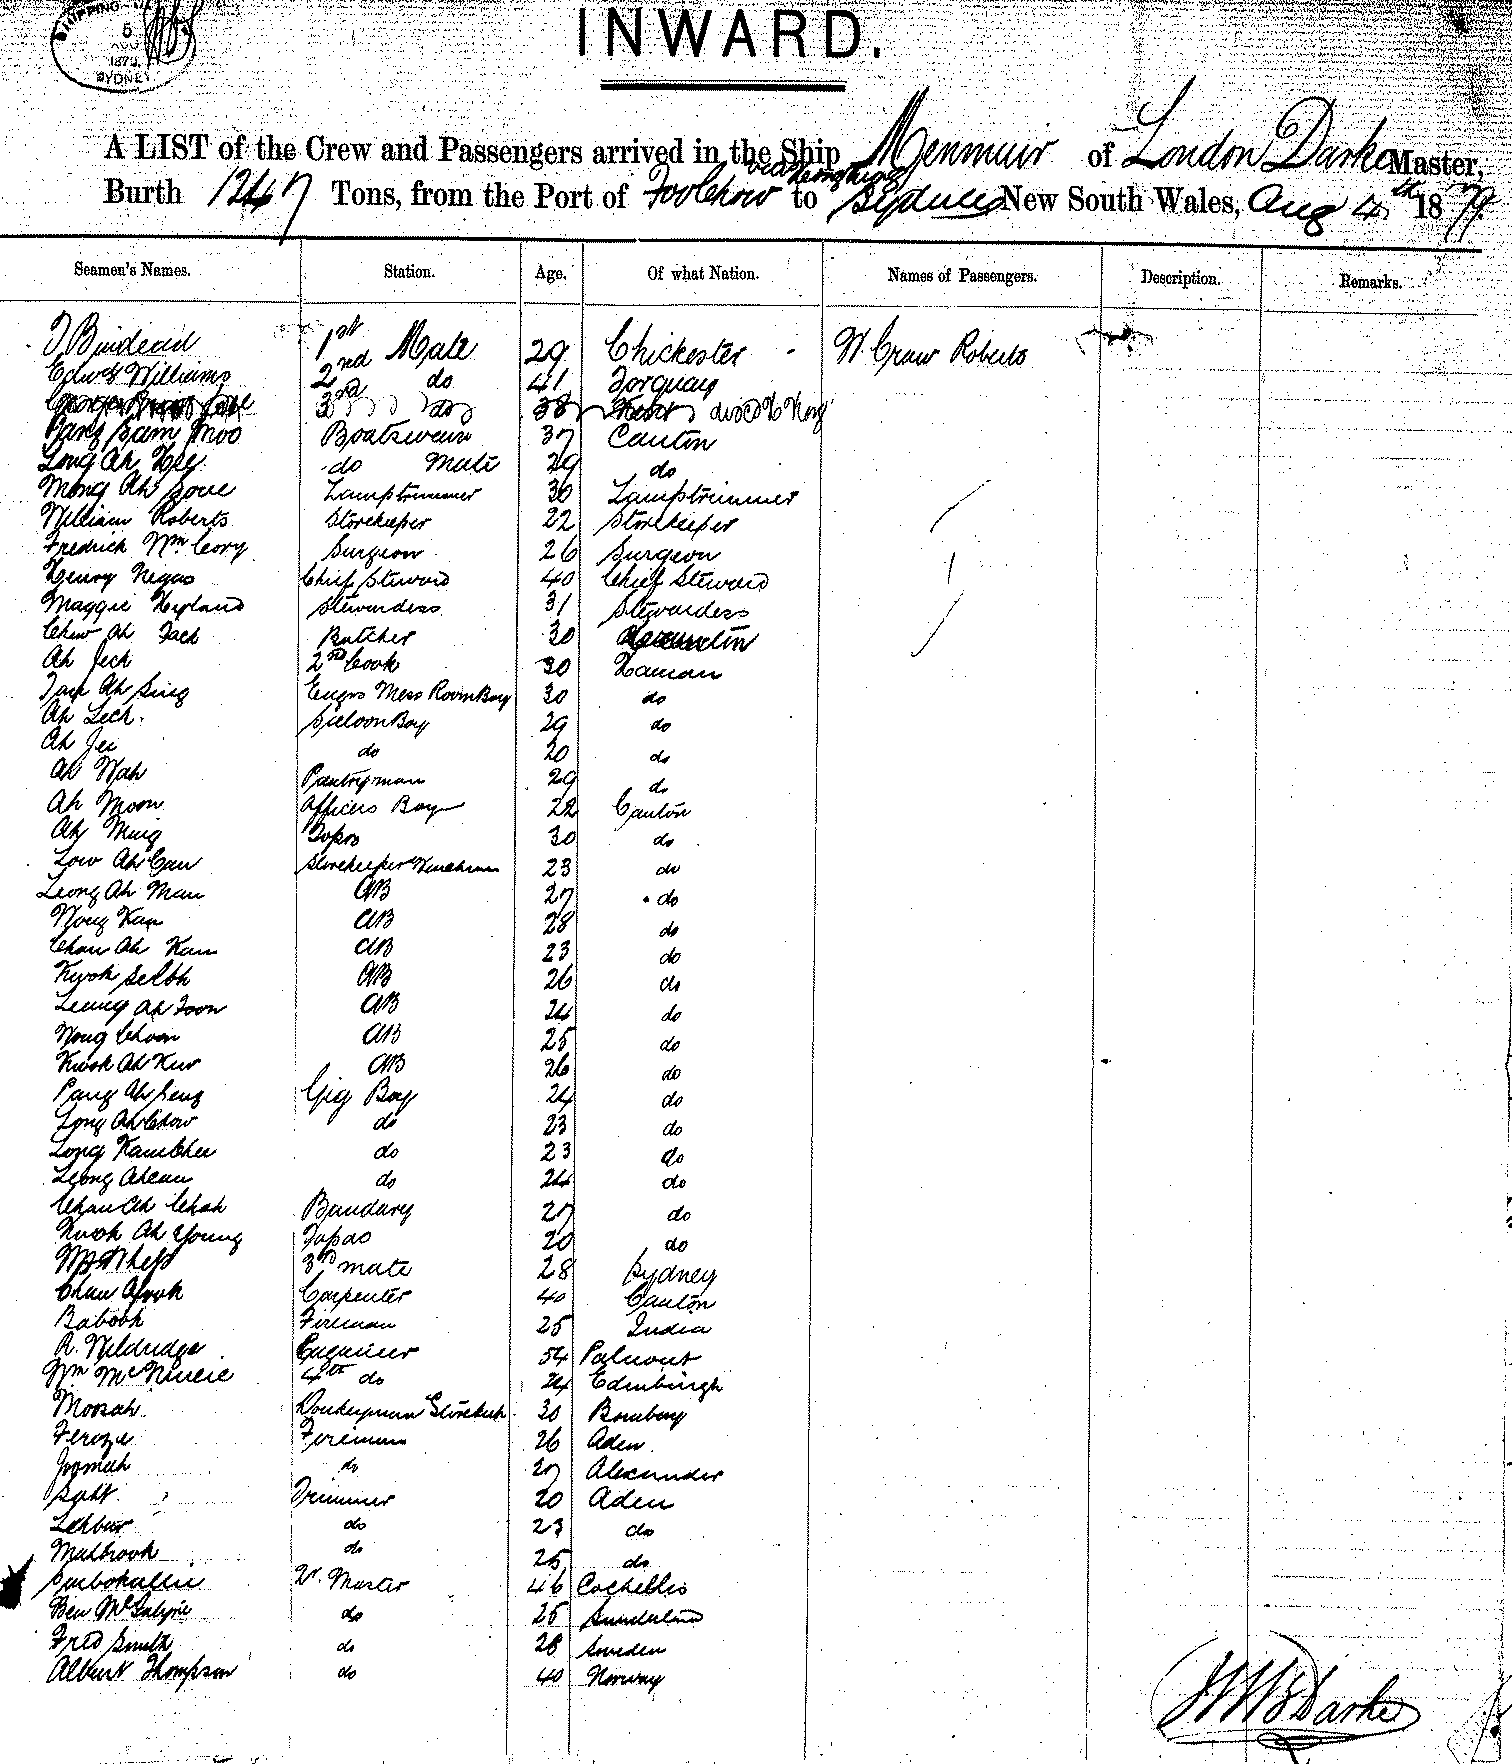 SHIPPING
5
1879
SYDNEY
INWARD.
A LIST of the Crew and Passengers arrived in the Ship Menmuir of London Darke Master,
via Hong Kong
Burth 1247 Tons, from the Port of Foochow to Sydney New South Wales, Aug 4th 1879
Seamen's Names. Station. Age. Of what Nation. Names of Passengers. Description. Remarks.
1st Mate 29 Chichester W. Craw Roberts
Edwd Williams 2nd do 41 Torquay
3rd do 38 Kent
Pang Sam Moo Boatswain 37 Canton
Long Ah Kee do Mate 29 do
Mong Ah Soue Lamptrimmer 30 Lamptrimmer
William Roberts Storekeeper 22 Storekeeper
Fredrick Wm Cory Surgeon 26 Surgeon
Henry Negus Chief Steward 40 Chief Steward
Maggie Hyland Stewardess 31 Stewardess
Chew Ah Tack Butcher 30
Ah Jeck 2nd Cook 30 Hainan
Ah Sing Engrs Mess Room Boy 30 do
Ah Leck. Saloon Boy 29 do
Ah Jei do 20 do
Ah Wah Pantryman 29 do
Ah Moon Officers Boy 22 Canton
Ah Ming Topas 30 do
Low Ah Can Storekeeper 23 do
Leong Ah Man AB 27 do
Wong Kan AB 28 do
Chan Ah Kam AB 23 do
Kwok AB 26 do
Leung Ah Toon AB 24 do
Wong Choon AB 25 do
Kwok Ah Kew AB 26 do
Pang Ah Seng Gig Boy 24 do
Long Ah Chow do 23 do
Long Kamchee do 23 do
Leong Aheam do 24 do
Chan Ah Chah Bandary 27 do
Kwok Ah Young Topas 20 do
3rd mate 28 Sydney
Chan Afook Carpenter 40 Canton
Babook Fireman 25 India
R. Wildridge Engineer 54
Wm 4th do 24 Edinburgh
Moosah Donkeyman 30 Bombay
Feroze Fireman 26 Aden
Joomah do 27 Alexander
Saht Trimmer 20 Aden
Lehbur do 23 do
Malbrook do 25 do
46
Ben do 25 Sunderland
Fred Smith do 28 Sweden
Albert Thompson do 40 Norway
Darke